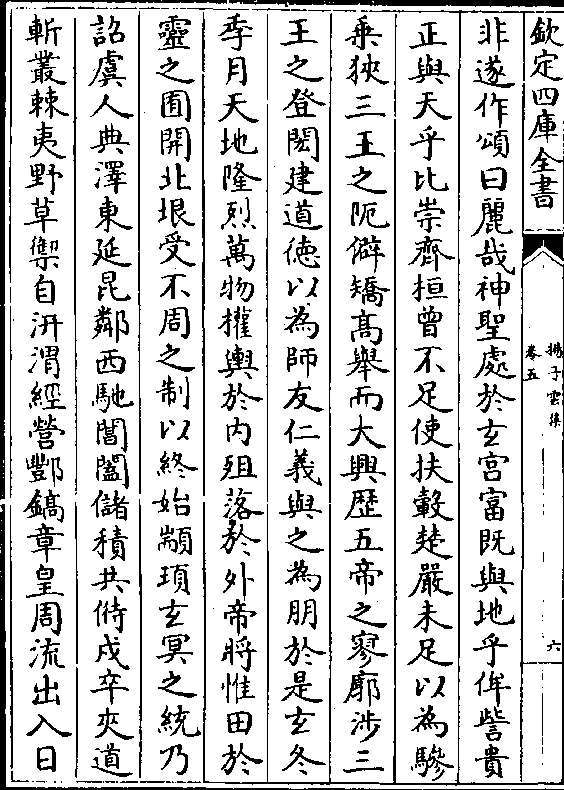 欽定四庫全書
揚子雲集
卷五
六
非遂作頌曰麗哉神聖處於玄宮富既與地乎侔訾貴
正與天乎比崇齊桓曾不足使扶轂楚嚴未足以為驂
乗狹三王之阨僻矯髙舉而大興歴五帝之寥廓涉三
王之登閎建道徳以為師友仁義與之為朋於是玄冬
季月天地隆烈萬物權輿於内殂落於外帝將惟田於
靈之囿開北垠受不周之制以終始顓頊玄冥之統乃
詔虞人典澤東延昆鄰西馳閶闔儲積共偫戍卒夾道
斬叢棘夷野草禦自汧渭經營酆鎬章皇周流出入日